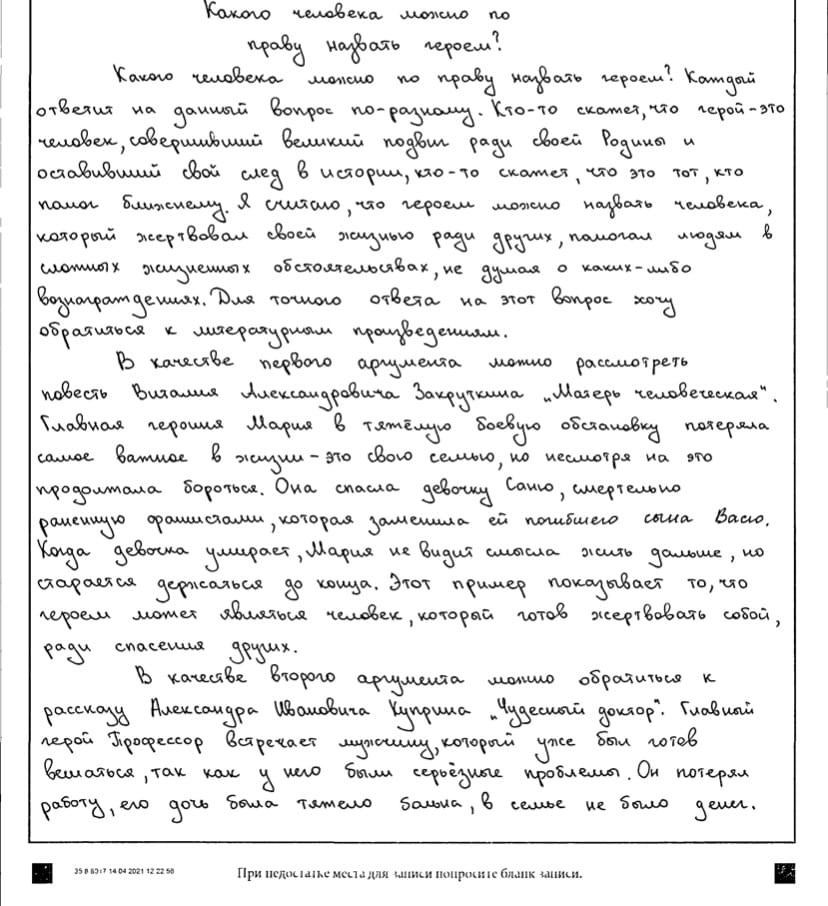 Какого человека можно по
праву назвать героем?
Какого человека можно по праву назвать героем? Каждый
ответил на данный вопрос по-разному. Кто-то скажет, что герой-это
человек, совершивший великий подвиг ради своей Родины и
оставивший свой след в истории, кто-то скажет, что это тот, кто
помог ближнему. Я считаю, что героем можно назвать человека,
который жертвовал своей жизнью ради других, помогал людям в
сложных жизненных обстоятельствах, не думая о каких-либо
вознаграждениях. Для точного ответа на этот вопрос хочу
обратиться к литературным произведениям.
В качестве первого аргумента можно рассмотреть
повесть Виталия Александровича Закруткина „Матерь человеческая".
Главная героиня Мария в тяжёлую боевую обстановку потеряла
самое важное в жизни - это свою семью, но несмотря на это
продолжала бороться. Она спасла девочку Саню, смертельно
раненную фашистами, которая заменила ей погибшего сына Васю.
Когда девочка умирает, Мария не видит смысла жить дальше, но
старается держаться до конца. Этот пример показывает то, что
героем может являться человек, который готов жертвовать собой,
ради спасения других.
В качестве второго аргумента можно обратиться к
рассказу Александра Ивановича Куприна „Чудесный доктор". Главный
герой Профессор встречает мужчину, который уже был готов
вешаться, так как у него были серьёзные проблемы. Он потерял
работу, его дочь была тяжело больна, в семье не было денег.
14 04 2021 12 22 58
При недостатке места для записи попросите бланк записи.